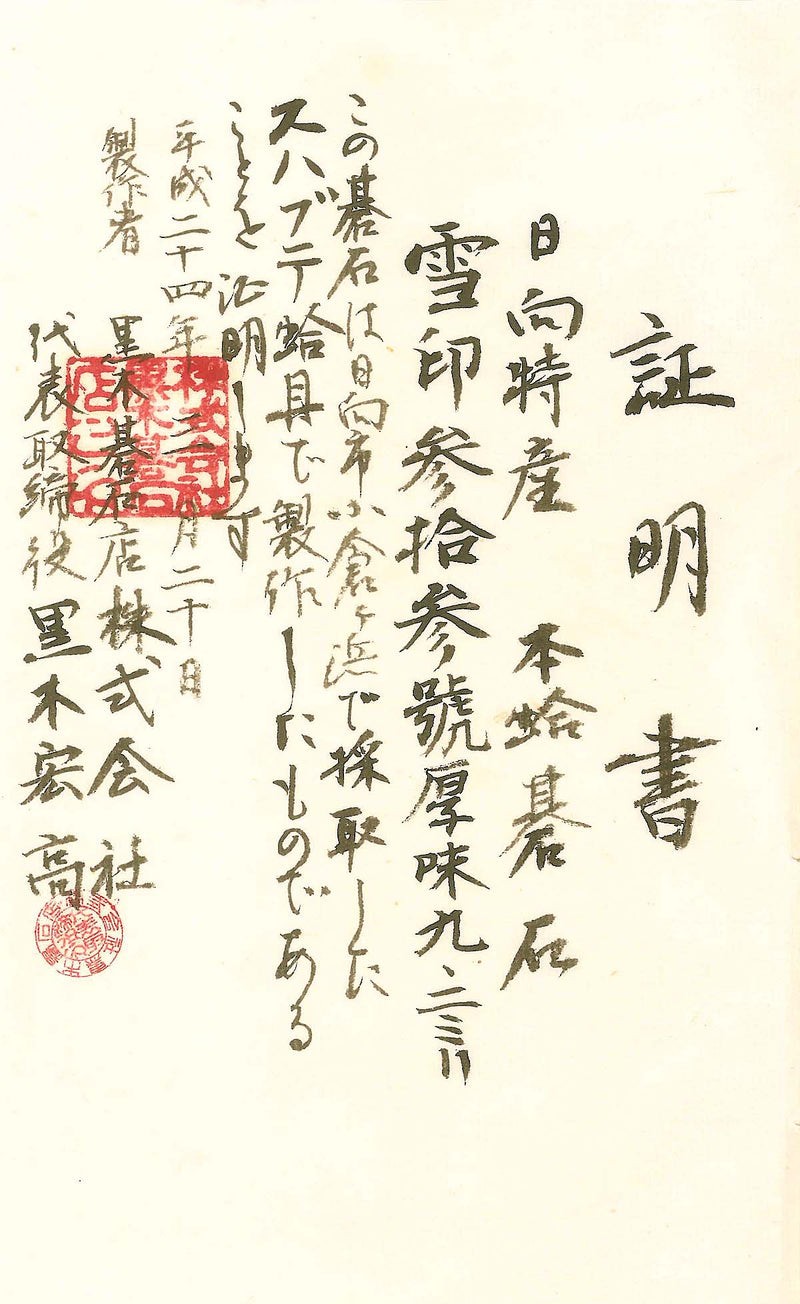 証明書
日向特産 本蛤碁石
雪印参拾参號厚味九、二ミリ
この碁石は日向市小倉ヶ浜で採取した
スハブテ蛤貝で製作したものである
ことを証明します
平成二十四年三月二十日
製作者 黒木碁石店株式会社
代表取締役 黒木宏高